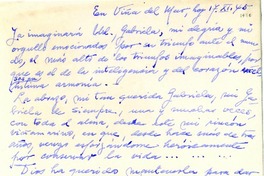 En Viña del Mar, hoy 17.XI.945
Ya imaginará Ud. Gabriela, mi alegría y mi
orgullo emocionados por su triunfo ante el mun-
do, el más alto de los triunfos imaginables, por-
que es el de la inteligencia y del corazón en el
misma armonía.
La abrazo, mi tan querida Gabriela, mi Ga-
briela de siempre, una y muchas veces, con
toda el alma, desde este mi rincón
viñamarino, en que, desde hace más de tres
años, vengo esforzándome heroicamente
por conservar la vida...
Dios ha querido para dar